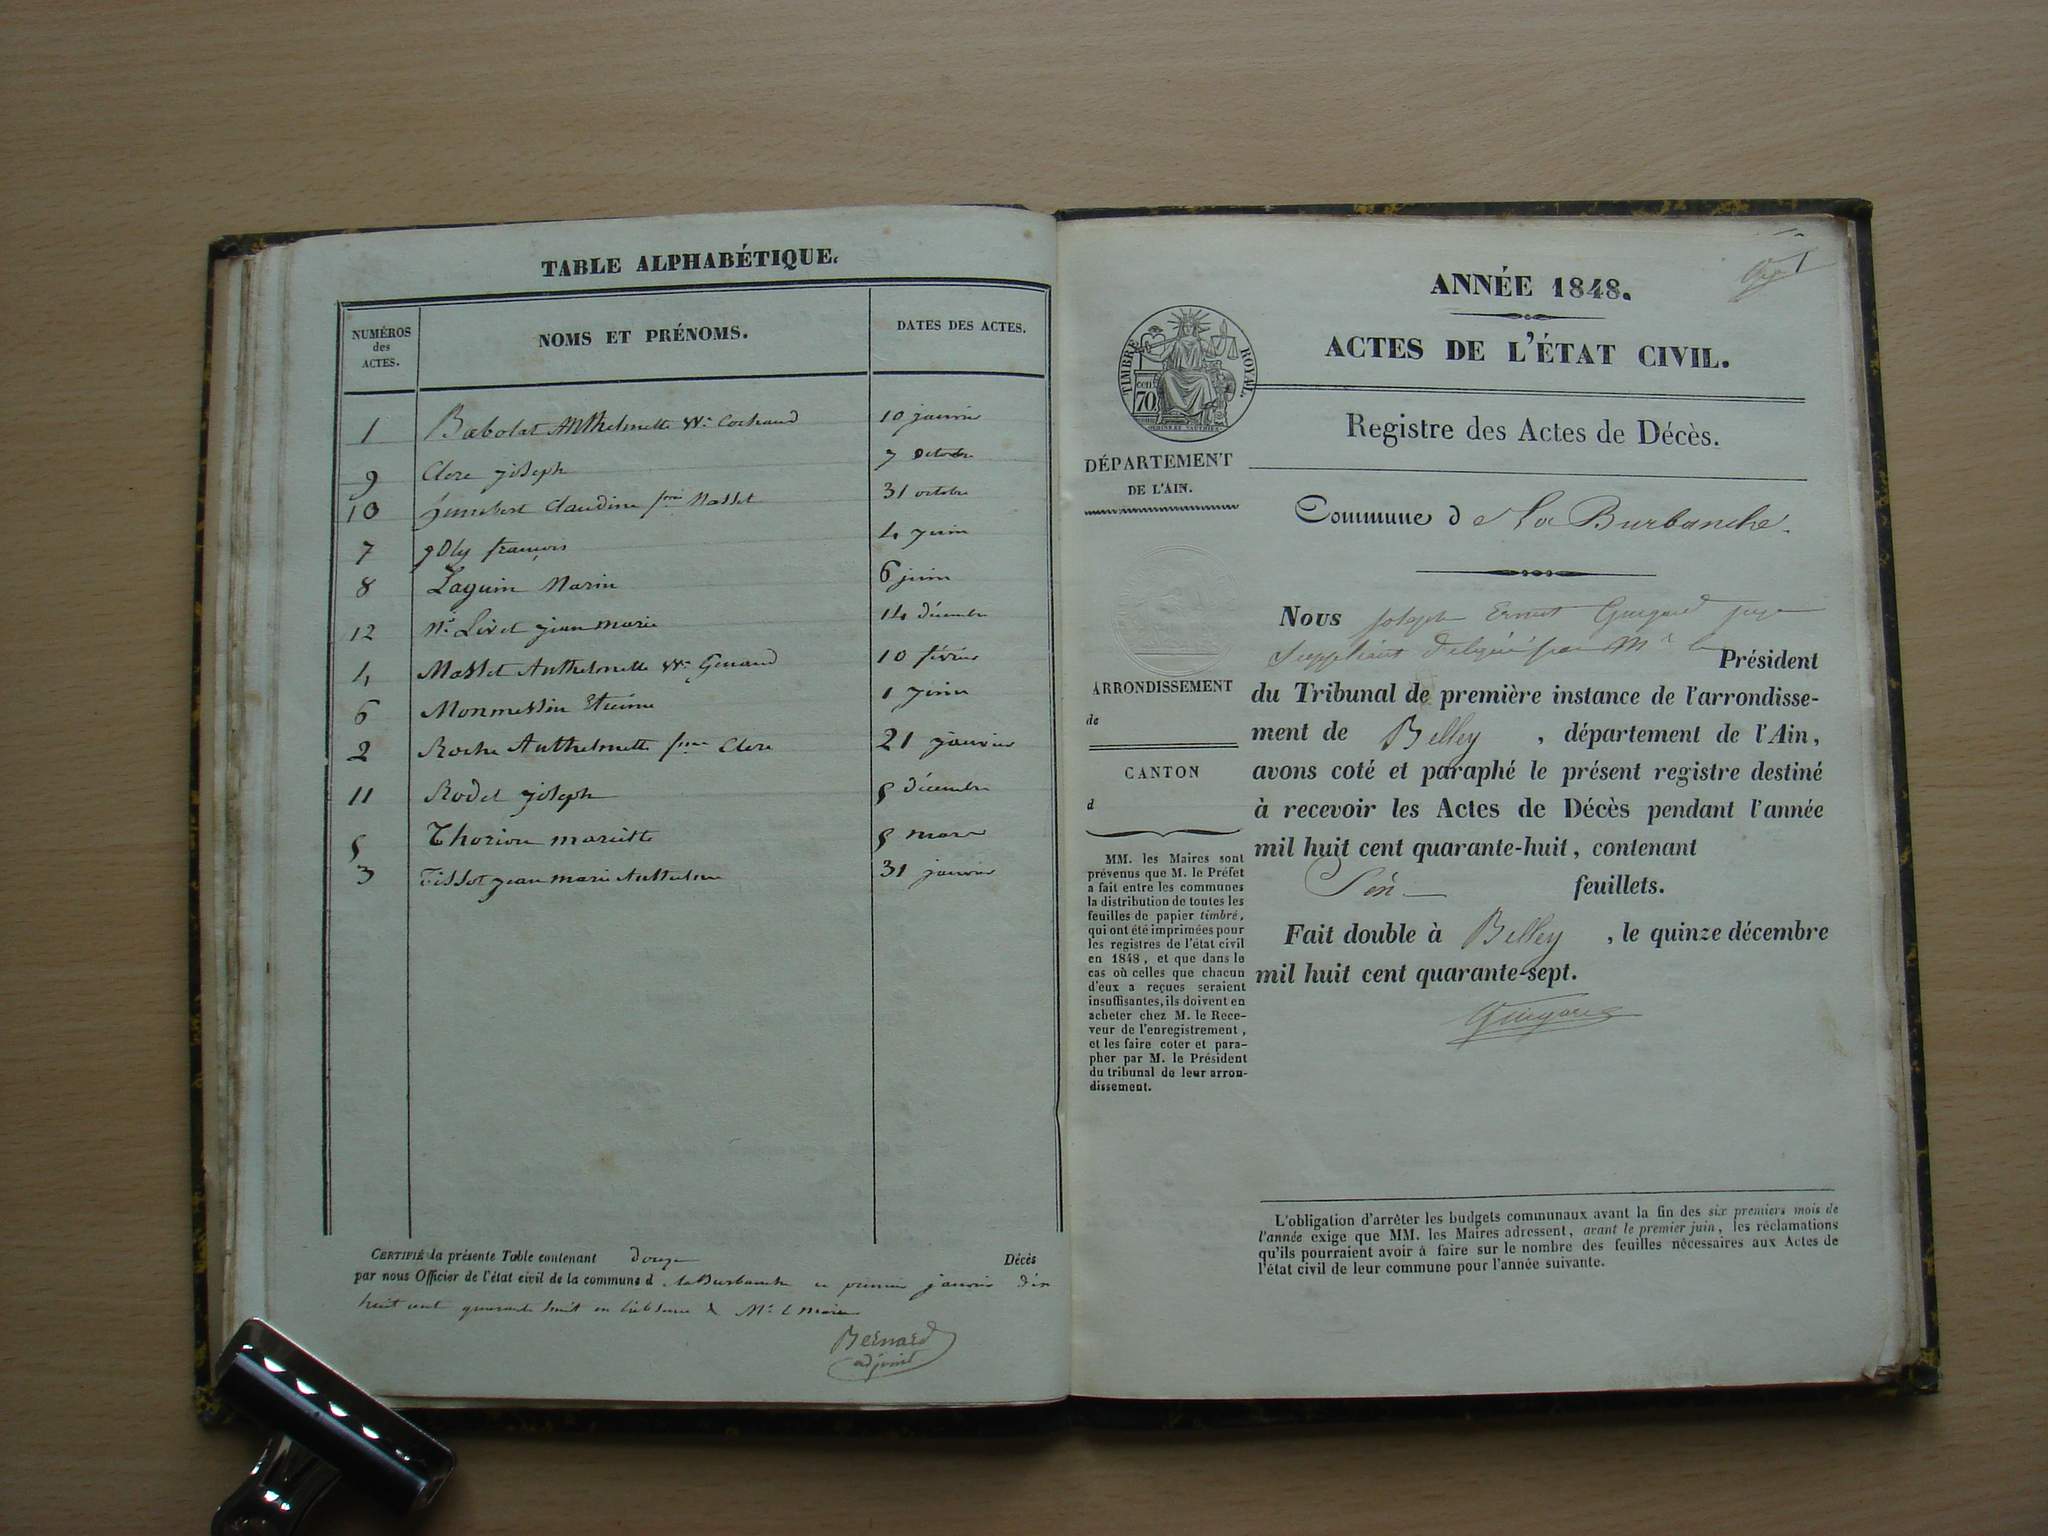 TABLE ALPHABÉTIQUE.
NUMÉROS
des
ACTES.
NOMS ET PRÉNOMS.
DATES DES ACTES.
1 Babolat Anthelmette Ve Cochaud 10 janvier
9 Clerc joseph 7 octobre
10 Claudine fme Masset 31 octobre
7 joly françois 4 juin
8 Laguin Marin 6 juin
12 Livet jean marie 14 décembre
4 Masset Anthelmette Ve 10 février
6 Monmessin Etienne 1 juin
2 Roche Anthelmette fme Clerc 21 janvier
11 Rodet joseph 5 décembre
5 Thorion mariette 5 mars
3 Tissot jean marie Anthelme 31 janvier
CERTIFIÉ la présente Table contenant douze Décès
par nous Officier de l'état civil de la commune d la Burbanche ce premier janvier dix
huit cent quarante huit en l'absence de Mr le maire
Bernard
adjoint
1
ANNÉE 1848.
ACTES DE L'ÉTAT CIVIL.
TIMBRE ROYAL.
cen
70
Registre des Actes de Décès.
DÉPARTEMENT
DE L'AIN.
Commune de La Burbanche.
ARRONDISSEMENT
de
CANTON
d
MM. les Maires sont
prévenus que M. le Préfet
a fait entre les communes
la distribution de toutes les
feuilles de papier timbré,
qui ont été imprimées pour
les registres de l'état civil
en 1848, et que dans le
cas où celles que chacun
d'eux a reçues seraient
insuffisantes, ils doivent en
acheter chez M. le Rece-
veur de l'enregistrement,
et les faire coter et para-
pher par M. le Président
du tribunal de leur arron-
dissement.
Nous joseph Ernest Guigard juge
Suppléant délégué par Mr le Président
du Tribunal de première instance de l'arrondisse-
ment de Belley, département de l'Ain,
avons coté et paraphé le présent registre destiné
à recevoir les Actes de Décès pendant l'année
mil huit cent quarante-huit, contenant
feuillets.
Fait double à Belley, le quinze décembre
mil huit cent quarante-sept.
Guigard
L'obligation d'arrêter les budgets communaux avant la fin des six premiers mois de
l'année exige que MM. les Maires adressent, avant le premier juin, les réclamations
qu'ils pourraient avoir à faire sur le nombre des feuilles nécessaires aux Actes de
l'état civil de leur commune pour l'année suivante.